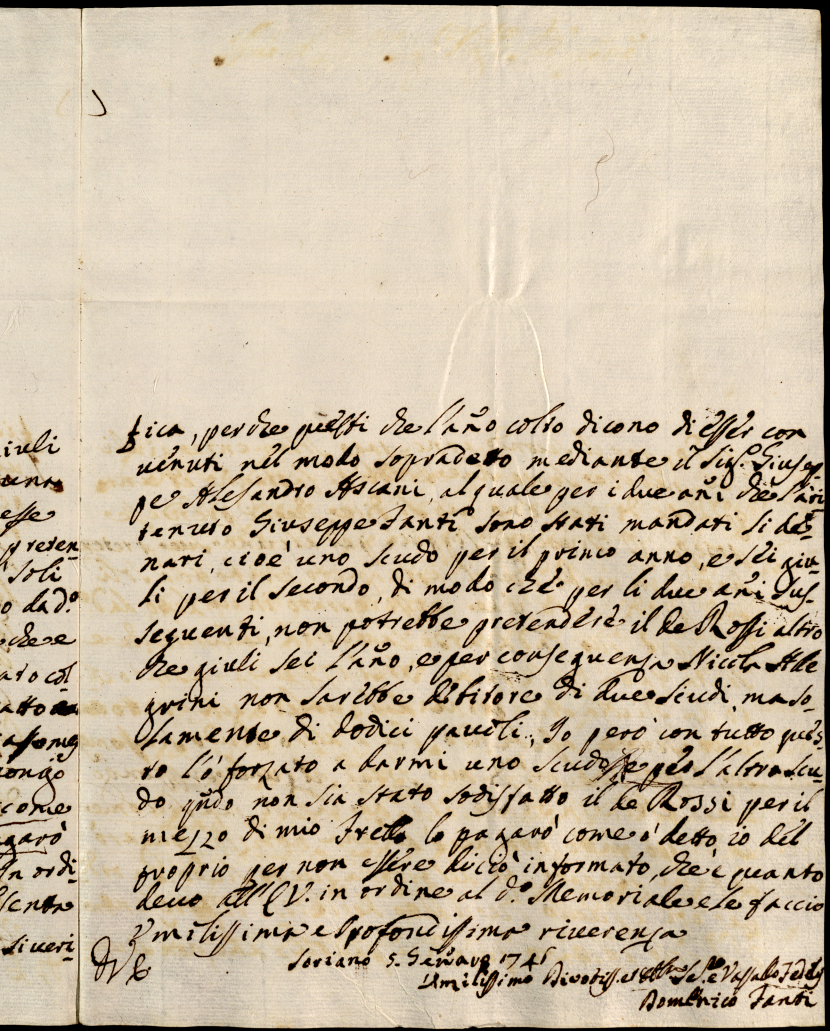 iuli
unna
esse
preten
soli
o da d.o
che e
ato col
atto
come
agarò
In ordi-
sente
si veri-
fica, perche questi che l'año colto dicono di esser con
venuti nel modo sopradetto mediante il Sig.r Giusep-
pe Alesandro Ascani, al quale per i due añi che l'à ri
tenuto Giuseppe Fanti sono stati mandati li de-
nari, cioè uno scudo per il primo anno, e sei giu-
li per il secondo, di modo che per li due añi sus-
seguenti, non potrebbe pretendere il de Rossi altro
che giuli sei l'año, e per conseguenza Nicola Ale
grini non sarebbe debitore di due scudi, ma so-
lamente di dodici pauoli; Io però con tutto ques
to l'ò forzato a darmi uno scudo, e per l'altro scu-
do qũdo non sia stato sodisfatto il de Rossi per il
mezzo di mio Frello lo pagarò come ò detto io del
proprio per non essere di ciò informato, che è quanto
deuo all' E V. in ordine al d.o Memoriale e le faccio
Vmilissima e Profondissima riuerenza
Soriano 5. Genaro 1741
D V E
Vmilissimo Diuotiss. et Obb.mo Se.re e Vassallo Fedelis
Domenico Fanti